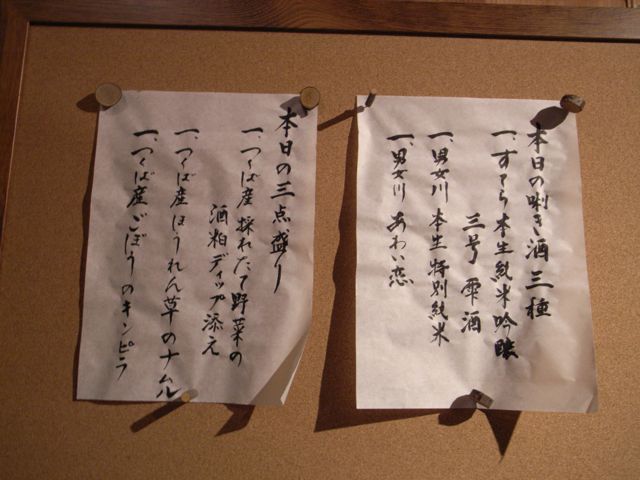 本日の唎き酒三種
一、すてら 本生純米吟醸
三号 雫酒
一、男女川 本生 特別純米
一、男女川 あわい恋
本日の三点盛り
一、つくば産 採れたて野菜の
酒粕ディップ添え
一、つくば産ほうれん草のナムル
一、つくば産ごぼうのキンピラ